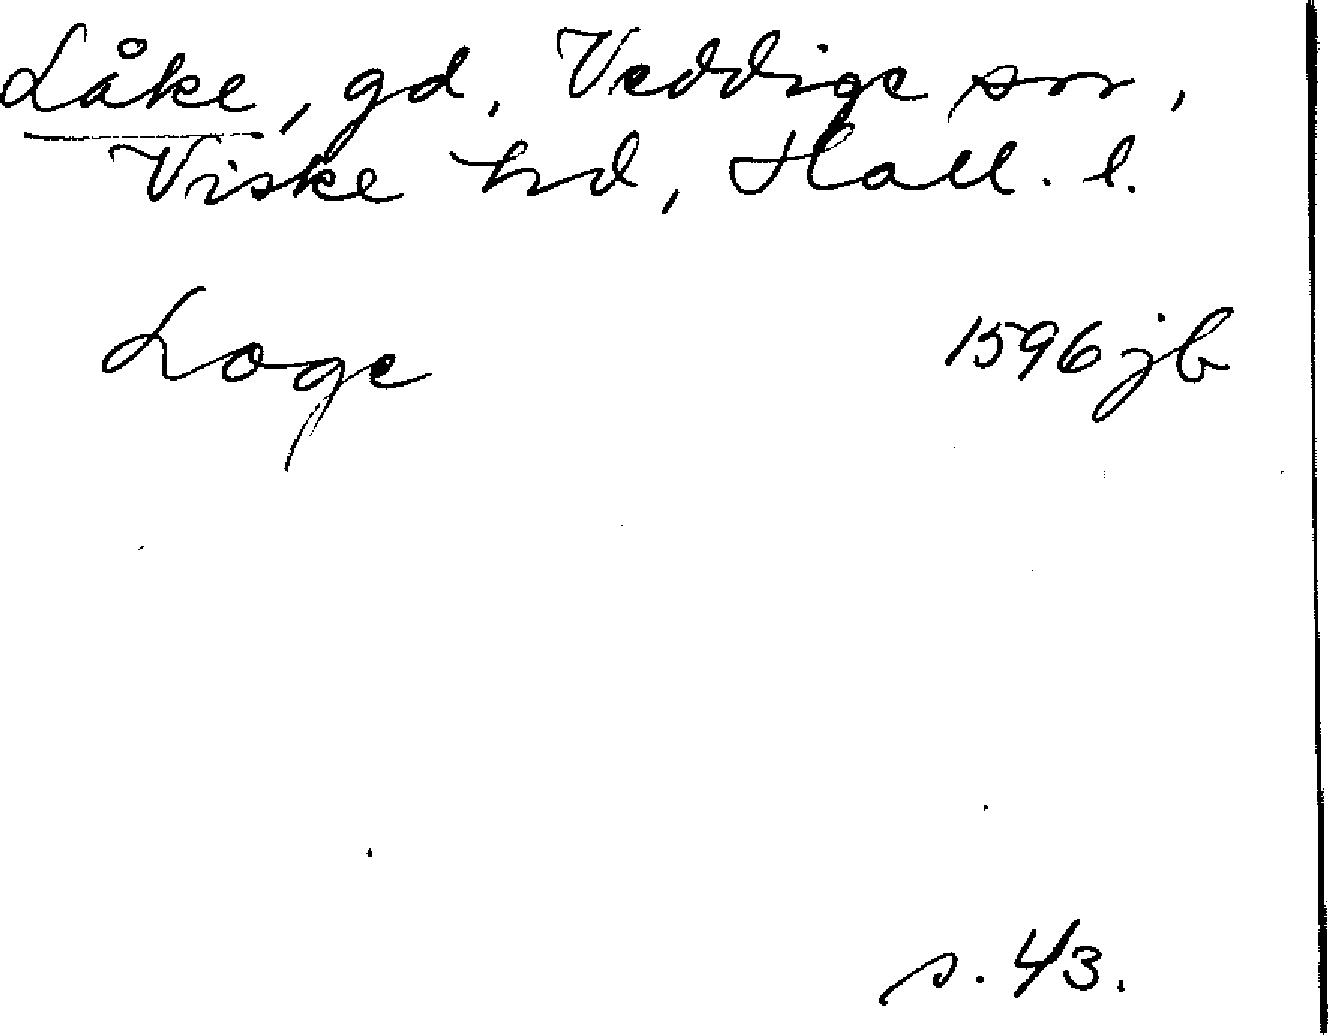 Låke, gd, Veddige sn,
Viske hd, Hall. l.
Loge 1596 jb
s. 43.